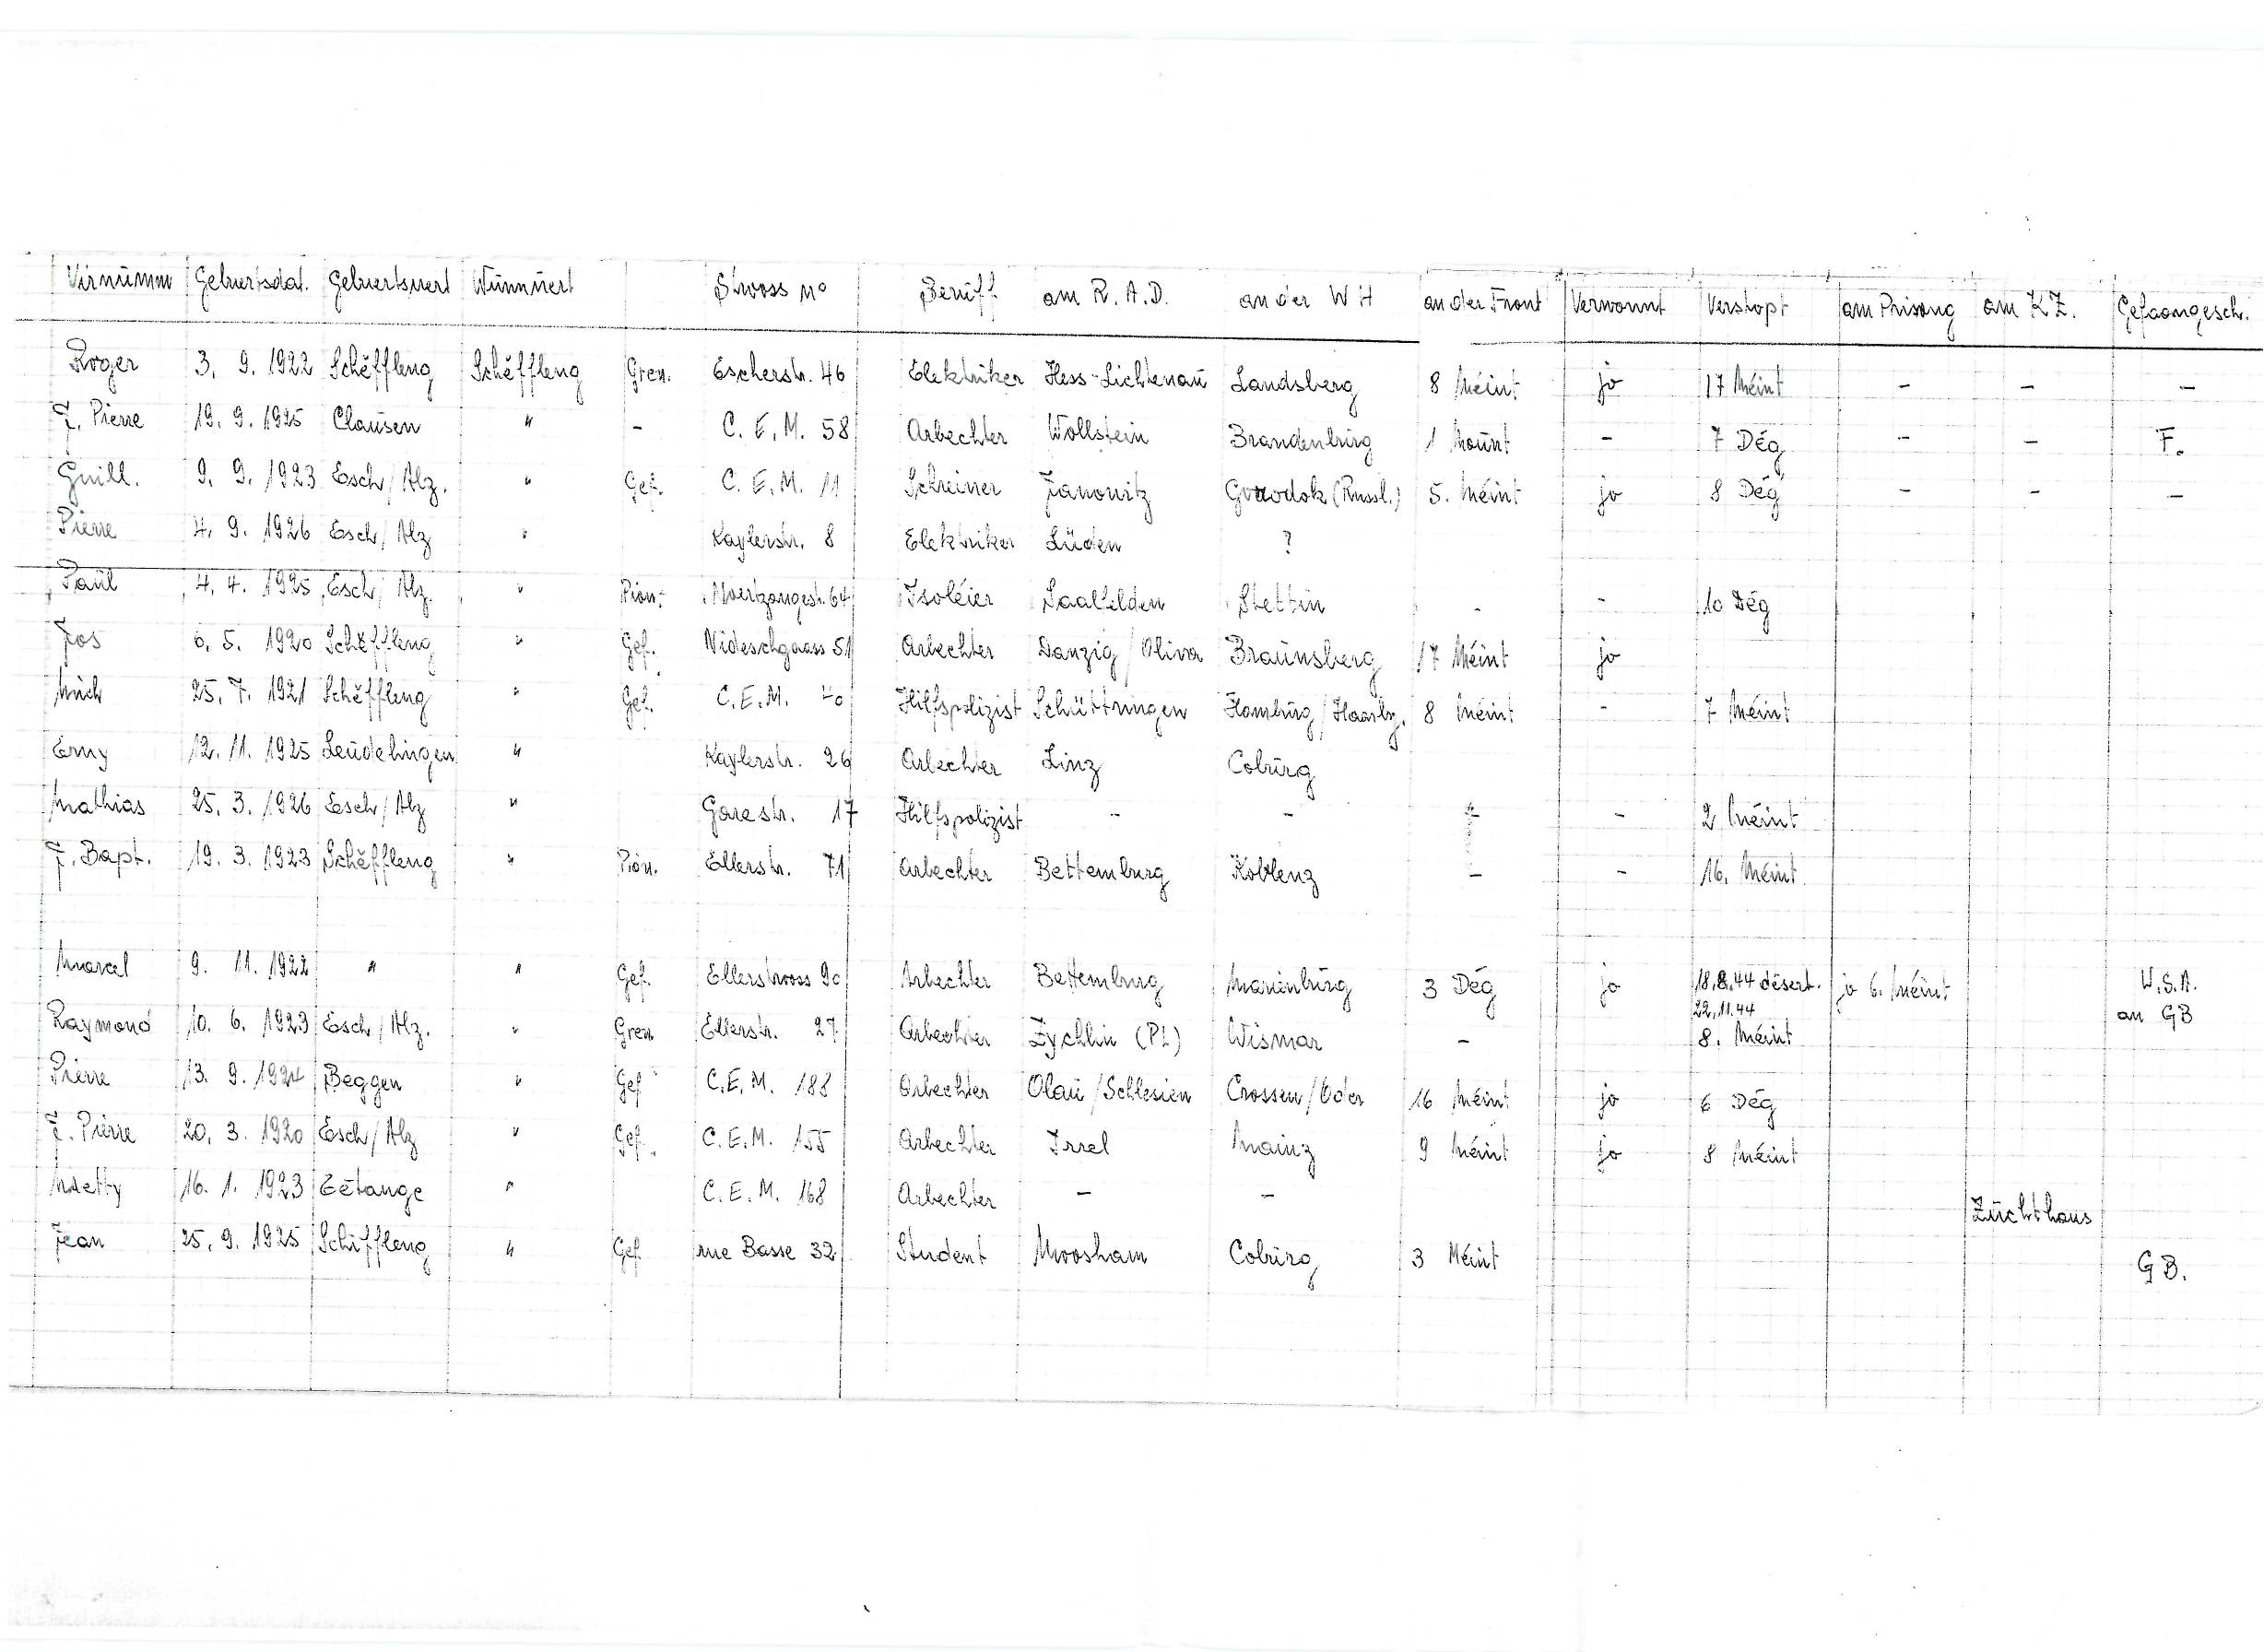 Virnumm Geburtsdat. Geburtsuert Wunnuert Strooss No Beruff am R.A.D. an der WH an der Front Verwonnt Verstopt am Prisong am KZ. Gefaangesch.
Roger 3. 9. 1922 Schëffleng Schëffleng Gren. Escherstr. 46 Elektriker Hess-Lichtenau Landsberg 8 Méint jo 17 Méint - - -
J. Pierre 19. 9. 1925 Clausen " - C. E. M. 58 Arbechter Wollstein Brandenburg 1 Mount - 7 Dég - - F.
Guill. 9. 9. 1923 Esch/Alz. " Gef. C. E. M. 11 Schreiner Janowitz (Russl.) 5. Méint jo 8 Dég - - -
Pierre 4. 9. 1926 Esch/Alz " Kaylerstr. 8 Elektriker Lüden ?
Paul 4. 4. 1925 Esch/Alz. " Pion. 64 Isoléier Saalfelden Stettin - - 10 Dég
Jos 6. 5. 1920 Schëffleng " Gef. Nideschgaass 51 Arbechter Danzig/Oliva Braunsberg 17 Méint jo
Mich 25. 7. 1921 Schëffleng " Gef. C.E.M. Hilfspolizist Schüttringen 8 Méint - 7 Méint
Erny 12. 11. 1925 Leudelingen " Kaylerstr. 26 Arbechter Linz Coburg
Mathias 25. 3. 1926 Esch/Alz " Garestr. 17 Hilfspolizist - - - 2 Méint
J. Bapt. 19. 3. 1923 Schëffleng " Pion. Ellerstr. 71 Arbechter Bettemburg Koblenz - - 16. Méint
Marcel 9. 11. 1922 " " Gef. Ellerstrooss 90 Arbechter Bettemburg Marienburg 3 Dég jo 18.8.44 désert. jo 6. Méint U.S.A.
22.11.44 an GB
Raymond 10. 6. 1923 Esch/Alz. " Gren. Ellerstr. 27 Arbechter Zychlin (PL) Wismar - 8. Méint
Pierre 13. 9. 1924 Beggen " Gef C.E.M. 188 Arbechter Olau/Schlesien Crossen/Oder 16 Méint jo 6 Dég
J. Pierre 20. 3. 1920 Esch/Alz " Gef. C.E.M. 155 Arbechter Irrel Mainz 9 Méint jo 8 Méint
Metty 16. 1. 1923 " C.E.M. 168 Arbechter - - Zuchthaus
Jean 25. 9. 1925 Schiffleng " Gef rue Basse 32 Student Moosham Coburg 3 Méint GB.